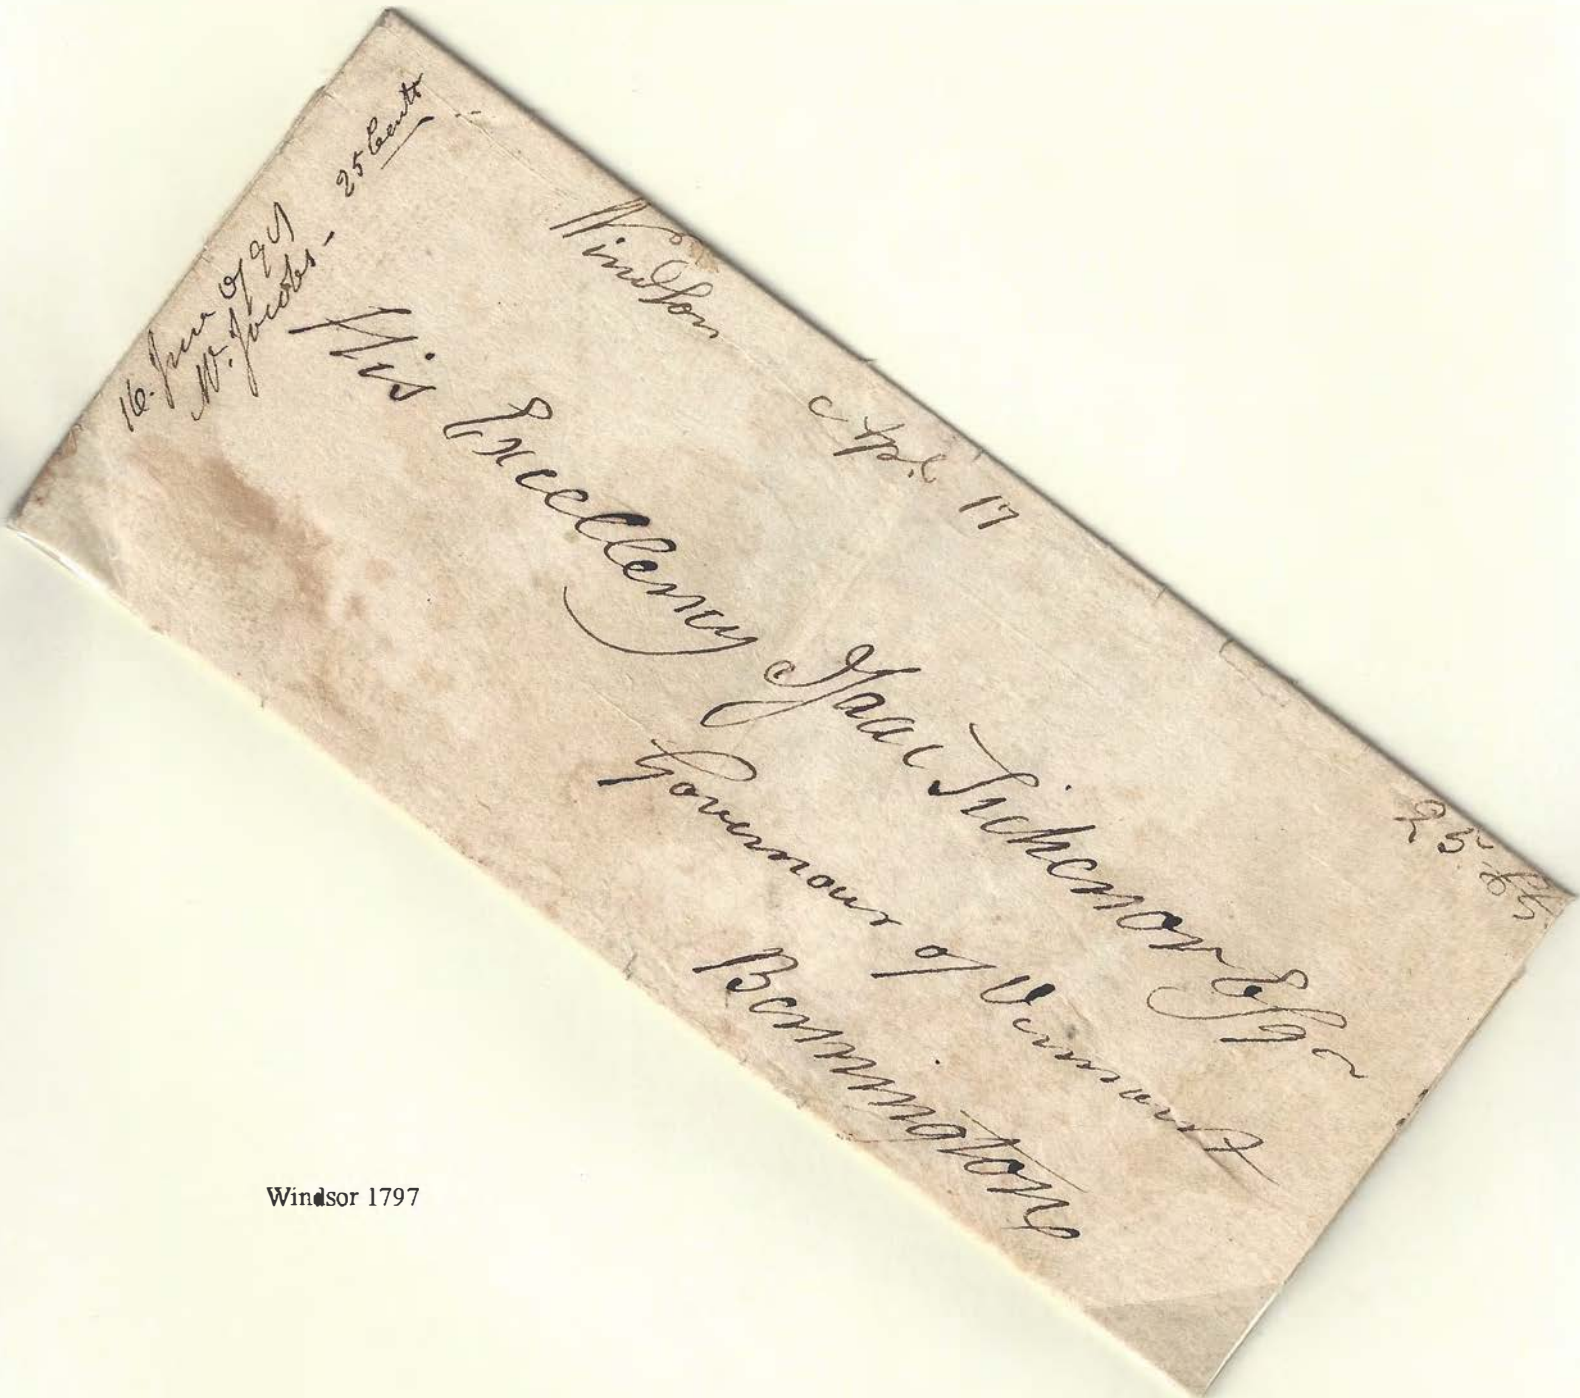 25 Cents
16. June 1797
W. Jacobs -
Windsor Apl. 17
25. Cts
His Excellency Isaac Tichenor Esqr
Governour of Vermont
Bennington
Windsor 1797